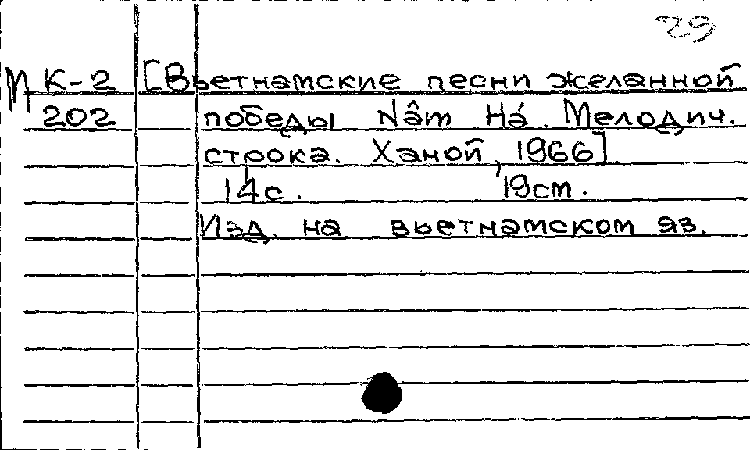 29
И К-2 [Вьетнамские песни желанной
202 победы Nâm Há. Мелодич.
строка. Ханой, 1966]
14с. 19cm.
Изд. на вьетнамском яз.